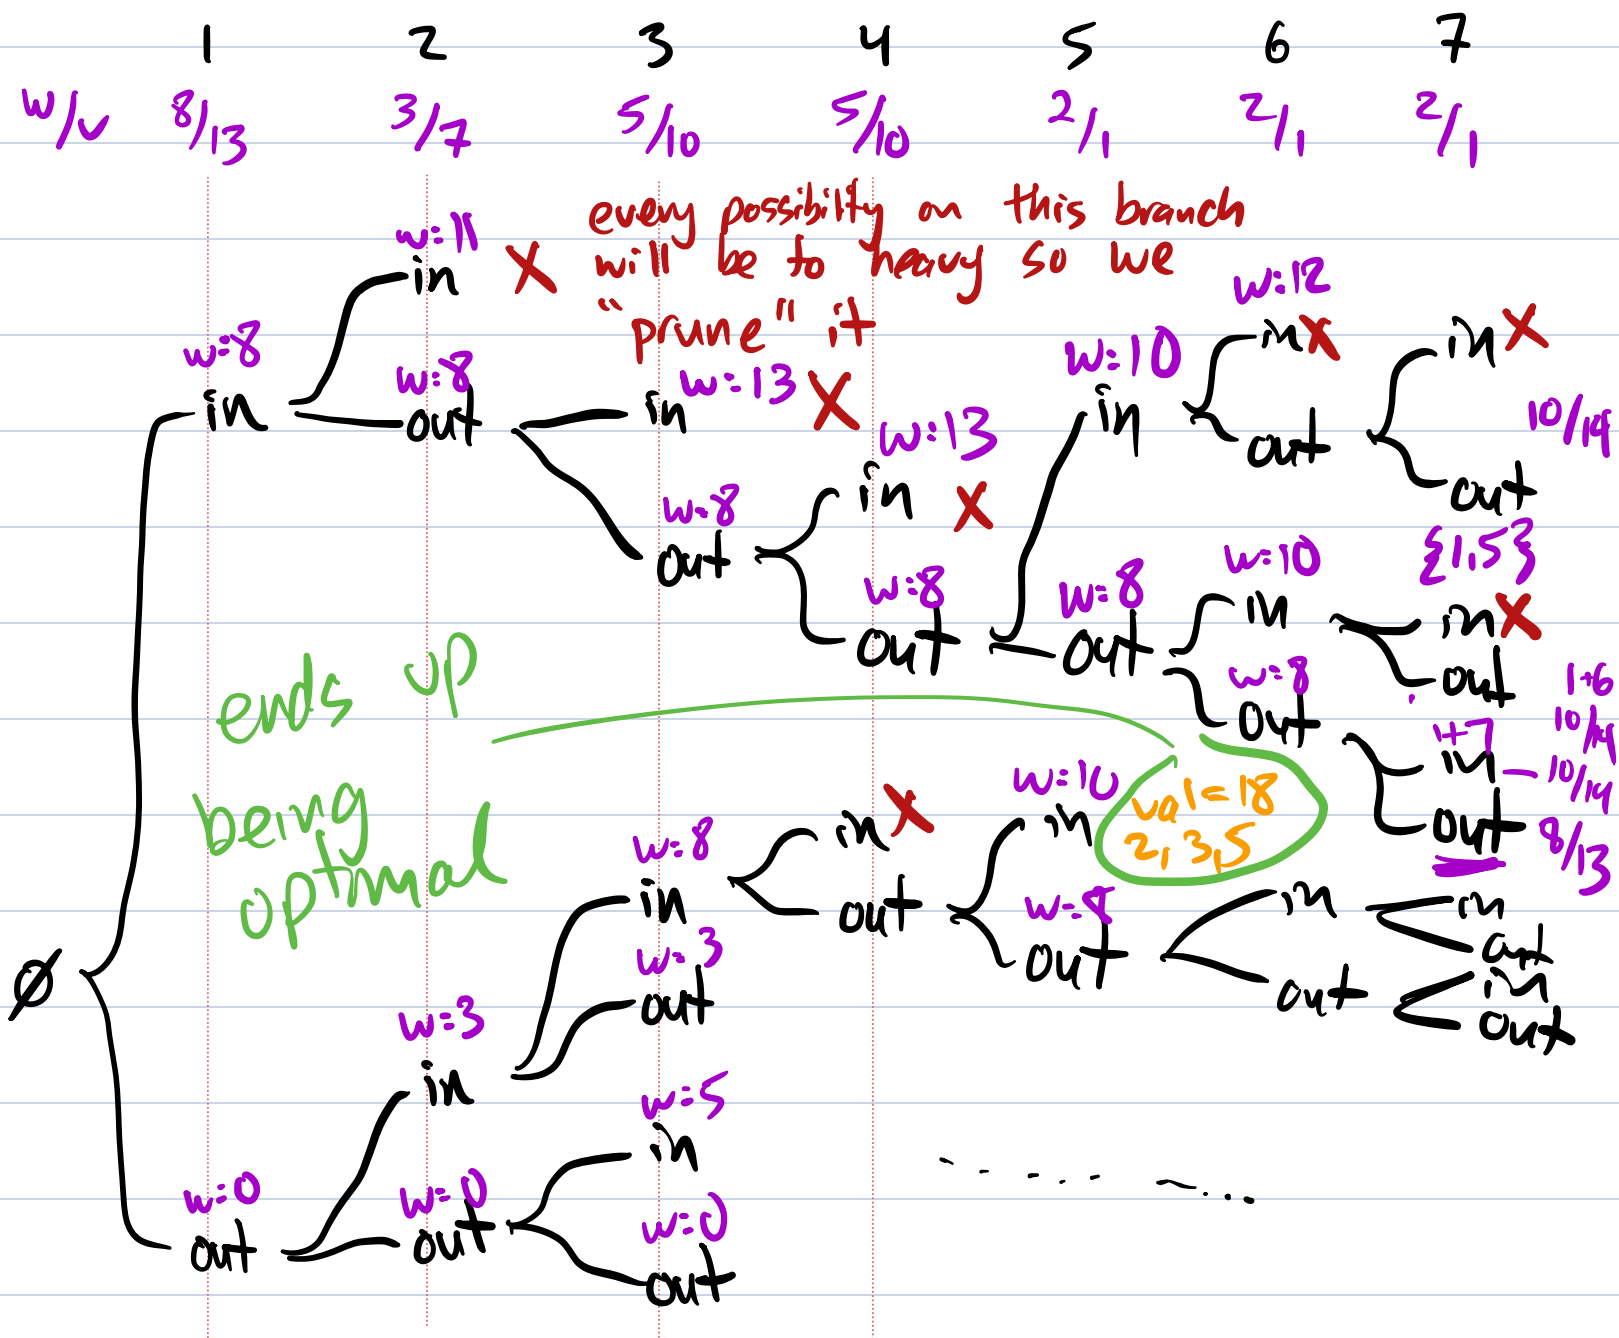 1 2 3 4 5 6 7
w/v 8/13 3/7 5/10 5/10 2/1 2/1 2/1
every possibilty on this branch
will be to heavy so we
"prune" it
w=11
in X
w=8
in
w=8
out
w=13
in X
w=8
out
w=13
in X
w=8
out
w=10
in
w=8
out
w=12
in X
out
in X
out
10/14
{1,5}
w=10
in
w=8
out
in X
out
1+6
10/14
1+7
in – 10/14
out 8/13
ends up
being
optimal
val=18
2,3,5
Ø
w=0
out
w=3
in
w=0
out
w=8
in
w=3
out
w=5
in
w=0
out
in X
out
w=10
in
w=8
out
in
out
in
out
in
out